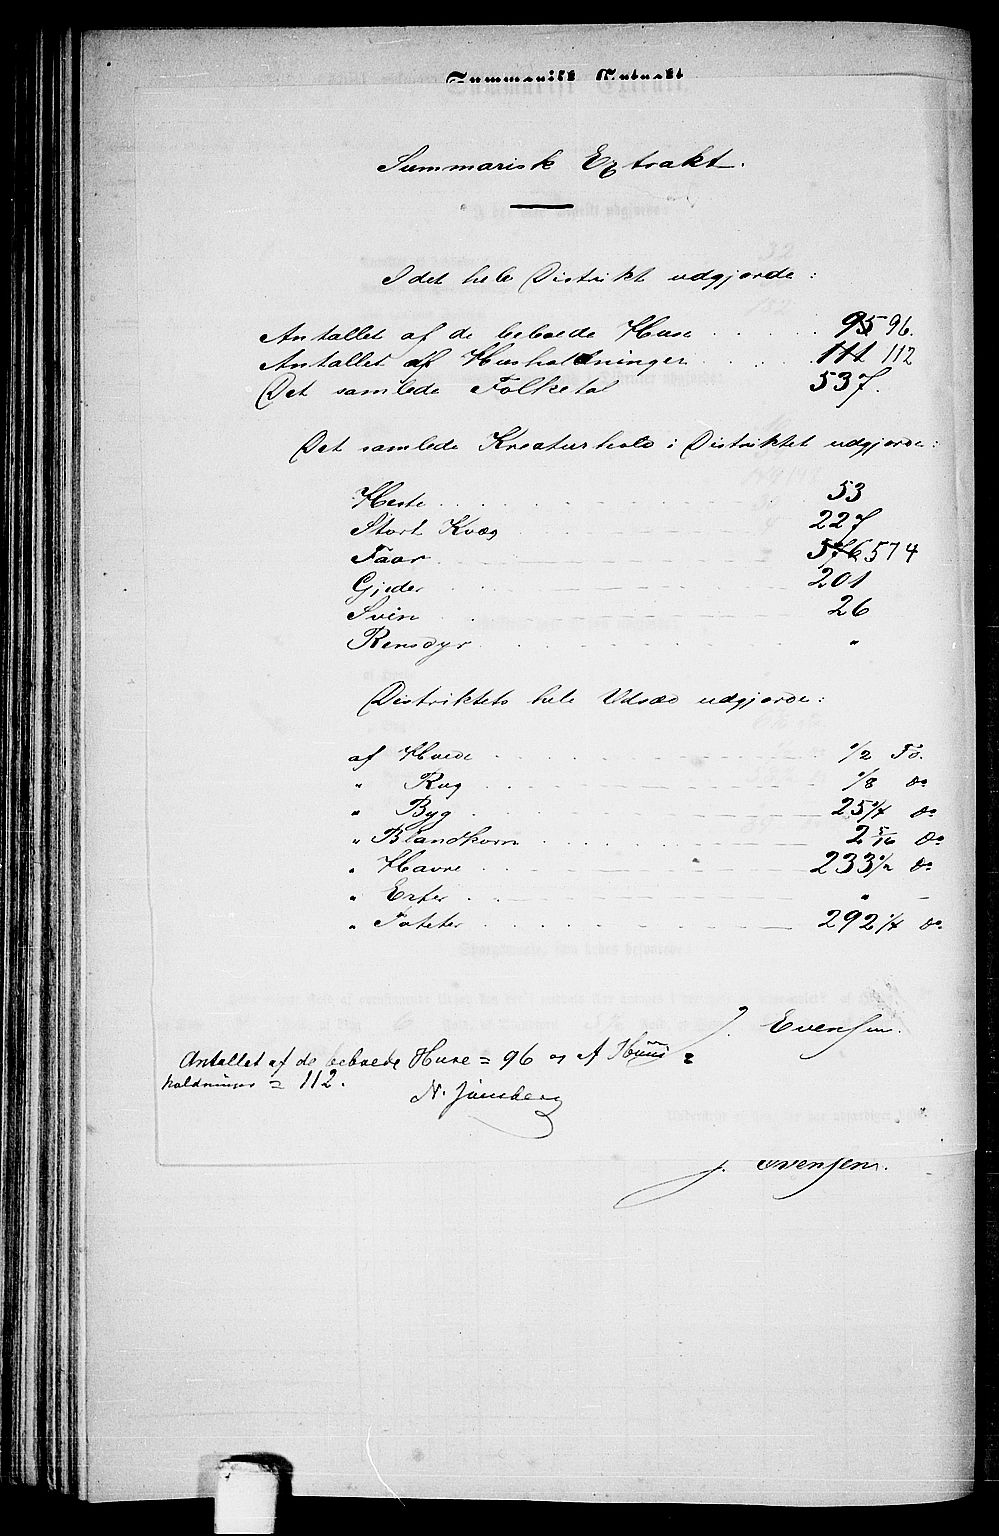 Summarisk Extrakt
Summarisk Extrakt.
I det hele Distrikt udgjorde:
Antallet af de beboede Huse . . . . 95 96.
Antallet af Husholdninger . . . 111 112
Det samlede Folketal 537.
Det samlede Kreaturhold i Distriktet udgjorde:
Heste 53
Stort Kvæg 227
Faar 576 574
Gjeder 201
Svin 26
Rensdyr "
Distriktets hele Udsæd udgjorde:
af Hvede 1/2 Tø.
" Rug 1/8 do
" Byg 25 1/4 do
" Blandkorn 2 5/16 do
" Havre 233 1/2 do
" Erter " –
" Poteter 292 1/4 do
J. Evensen.
Antallet af de beboede Huse = 96 og A Huus=
holdninger = 112.
J. Evensen.